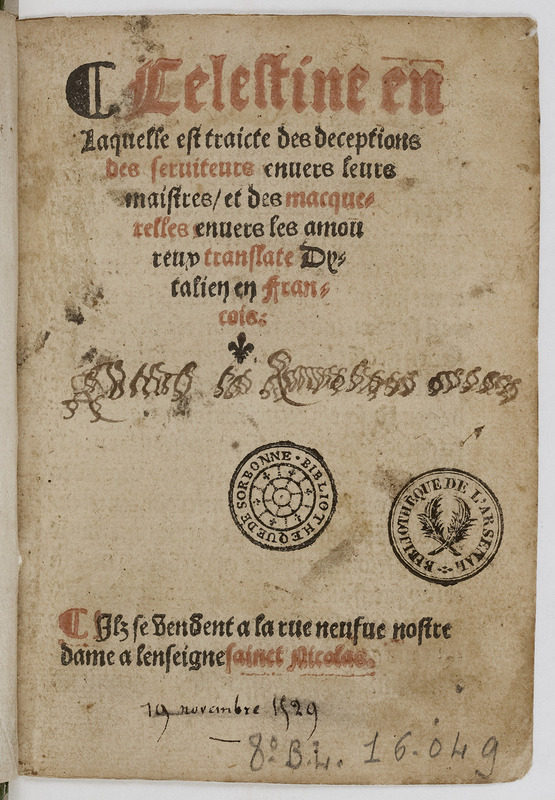 Celestine en
Laquelle est traicte des deceptions
des seruiteurs enuers leurs
maistres/ et des macque-
relles enuers les amou
reux translate Dy-
talien en Fran-
cois.
BIBLIOTHEQUE DE SORBONNE
BIBLIOTHÈQUE DE L'ARSENAL
Ilz se Vendent a la rue neufue nostre
dame a lenseigne sainct Nicolas.
19 novembre 1529
8º B.L. 16.049